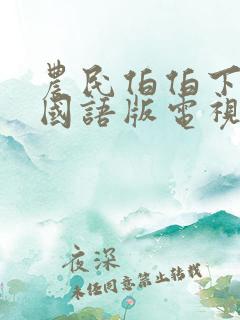 農民伯伯下
國語版電視
夜深
未经同意禁止转载